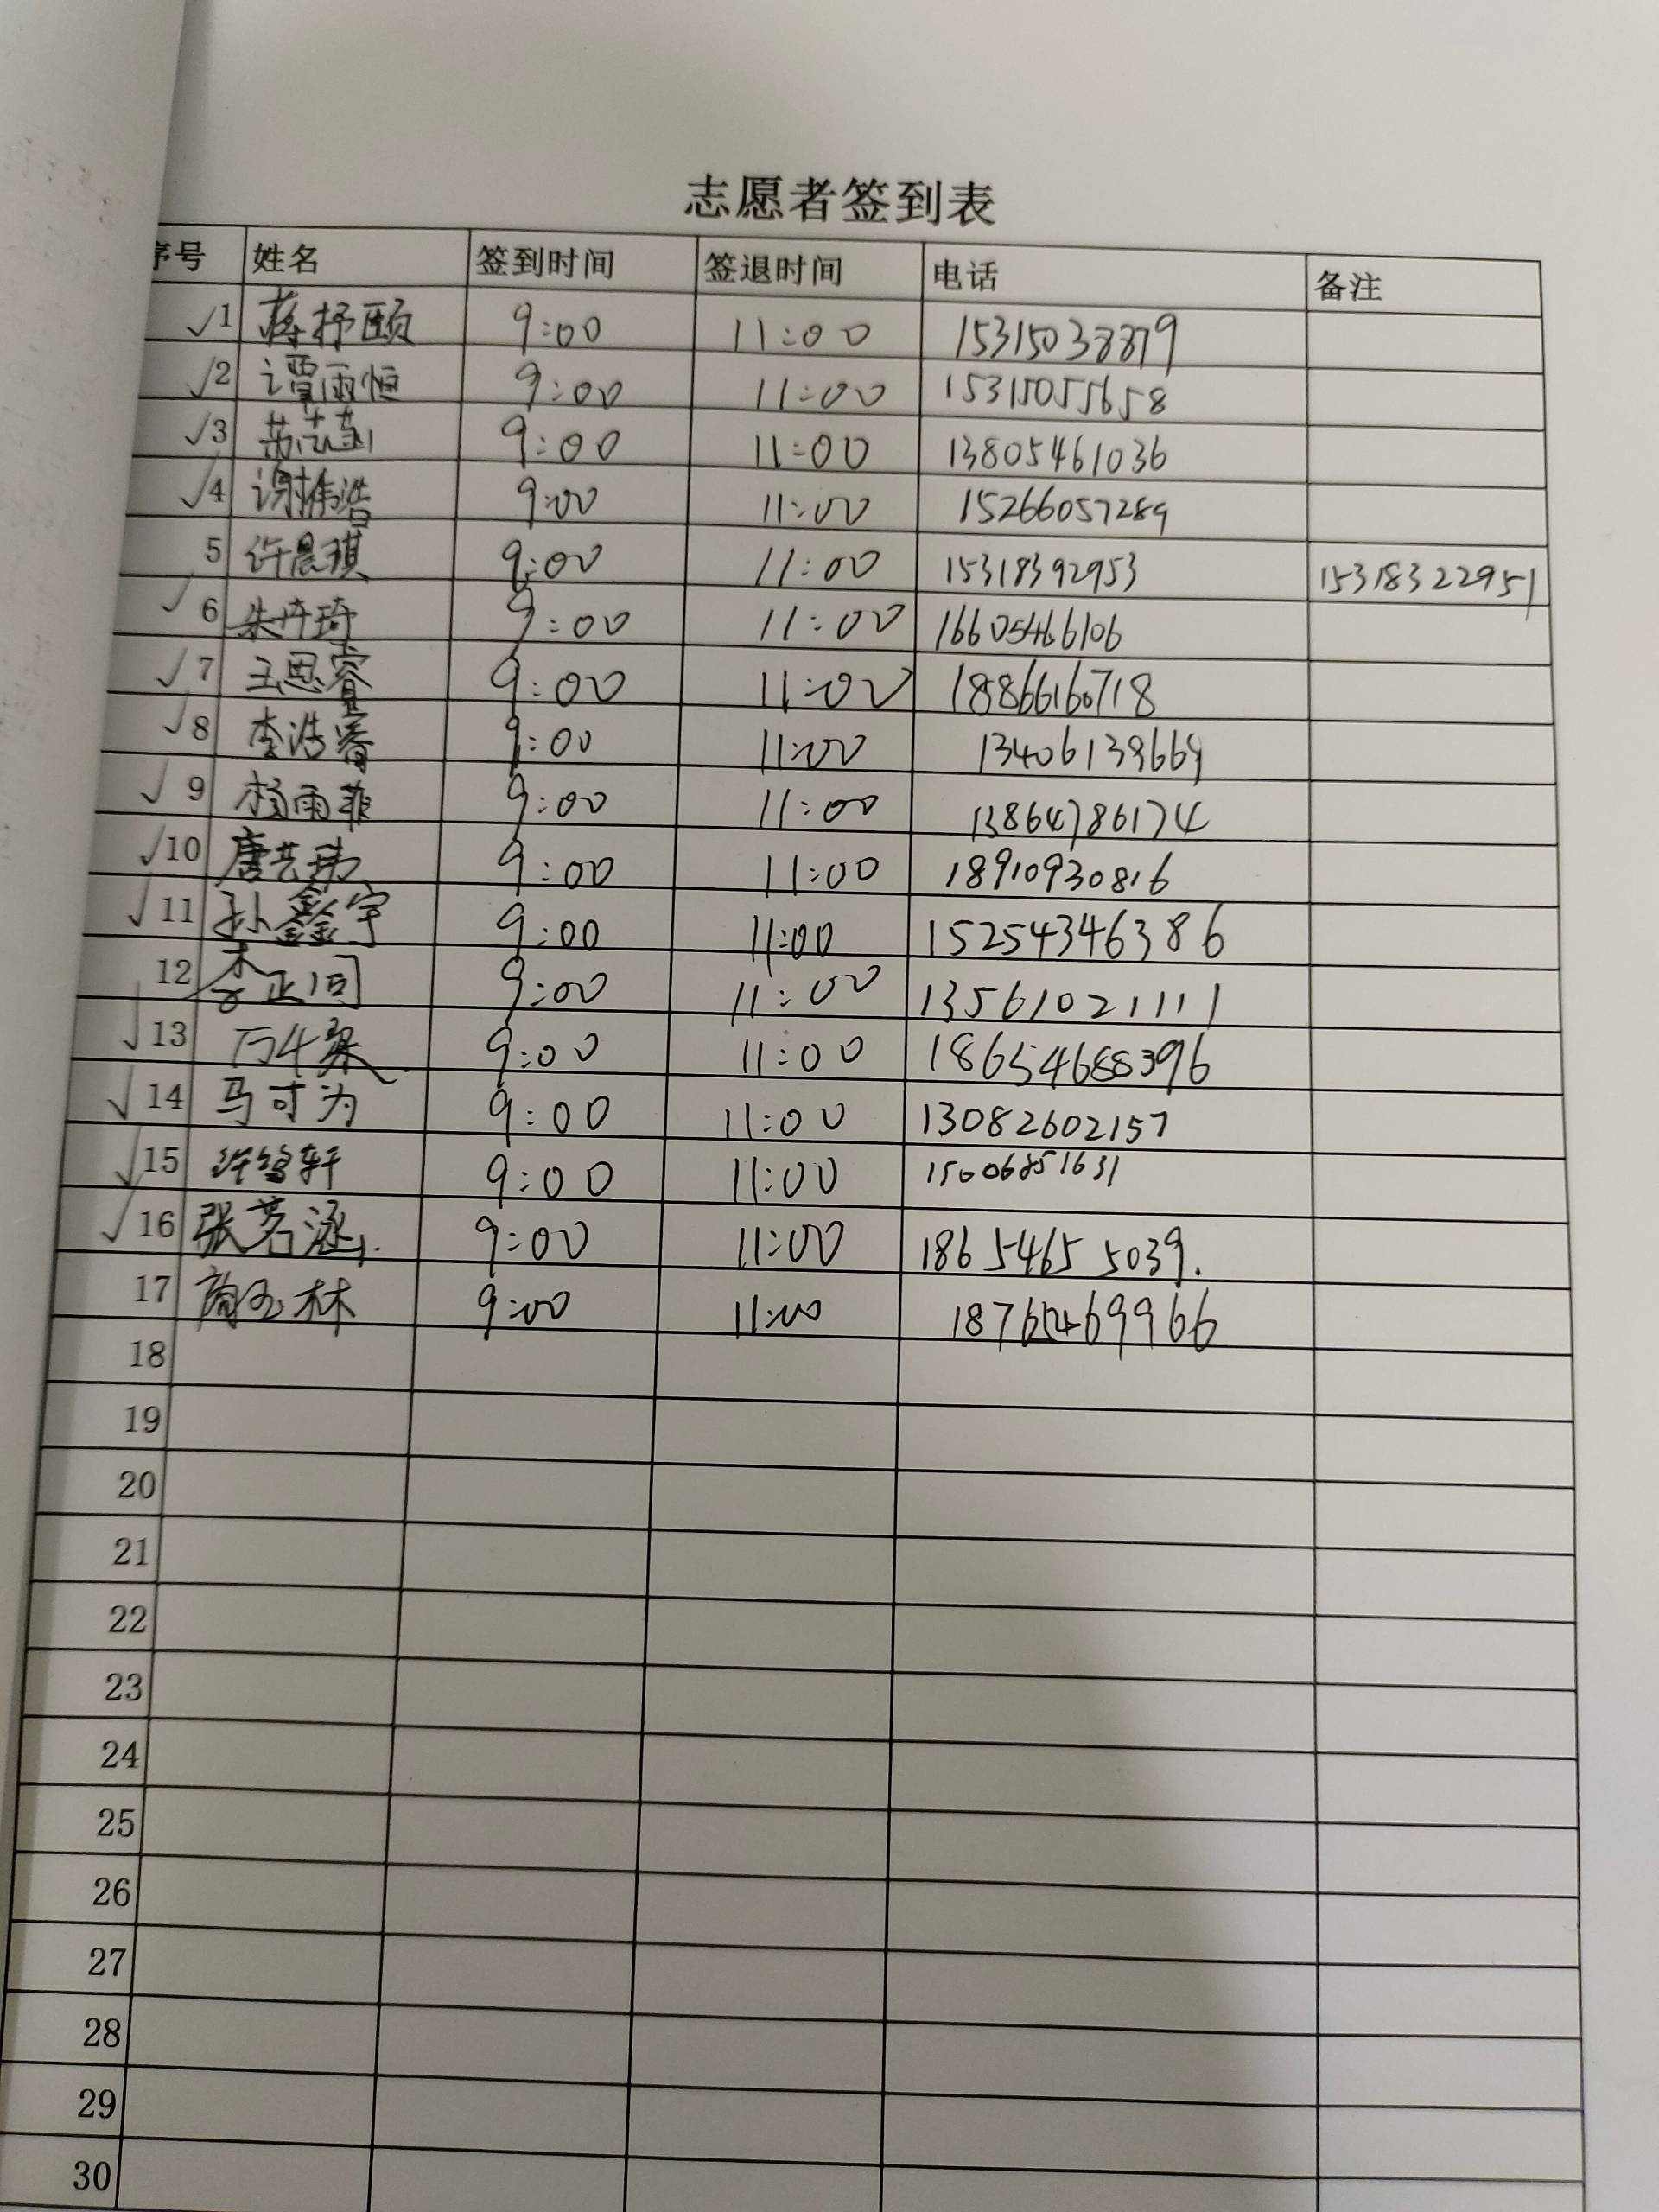 志愿者签到表
序号 姓名 签到时间 签退时间 电话 备注
√1 蒋抒颐 9:00 11:00 15315038879
√2 谭雨恒 9:00 11:00 15315055658
√3 9:00 11:00 13805461036
√4 谢楠浩 9:00 11:00 15266057289
5 许晨琪 9:00 11:00 15318392953 15318322951
√6 朱卉琦 9:00 11:00 16605466106
√7 王思睿 9:00 11:00 18866160718
√8 李浩睿 9:00 11:00 13406139669
√9 杨雨菲 9:00 11:00 13864786174
√10 唐艺玮 9:00 11:00 18910930816
√11 孙鑫宇 9:00 11:00 15254346386
12 李正同 9:00 11:00 13561021111
√13 9:00 11:00 18654688396
√14 马可为 9:00 11:00 13082602157
√15 许铭轩 9:00 11:00 15006851631
√16 张茗涵 9:00 11:00 18654655039.
17 9:00 11:00
18
19
20
21
22
23
24
25
26
27
28
29
30